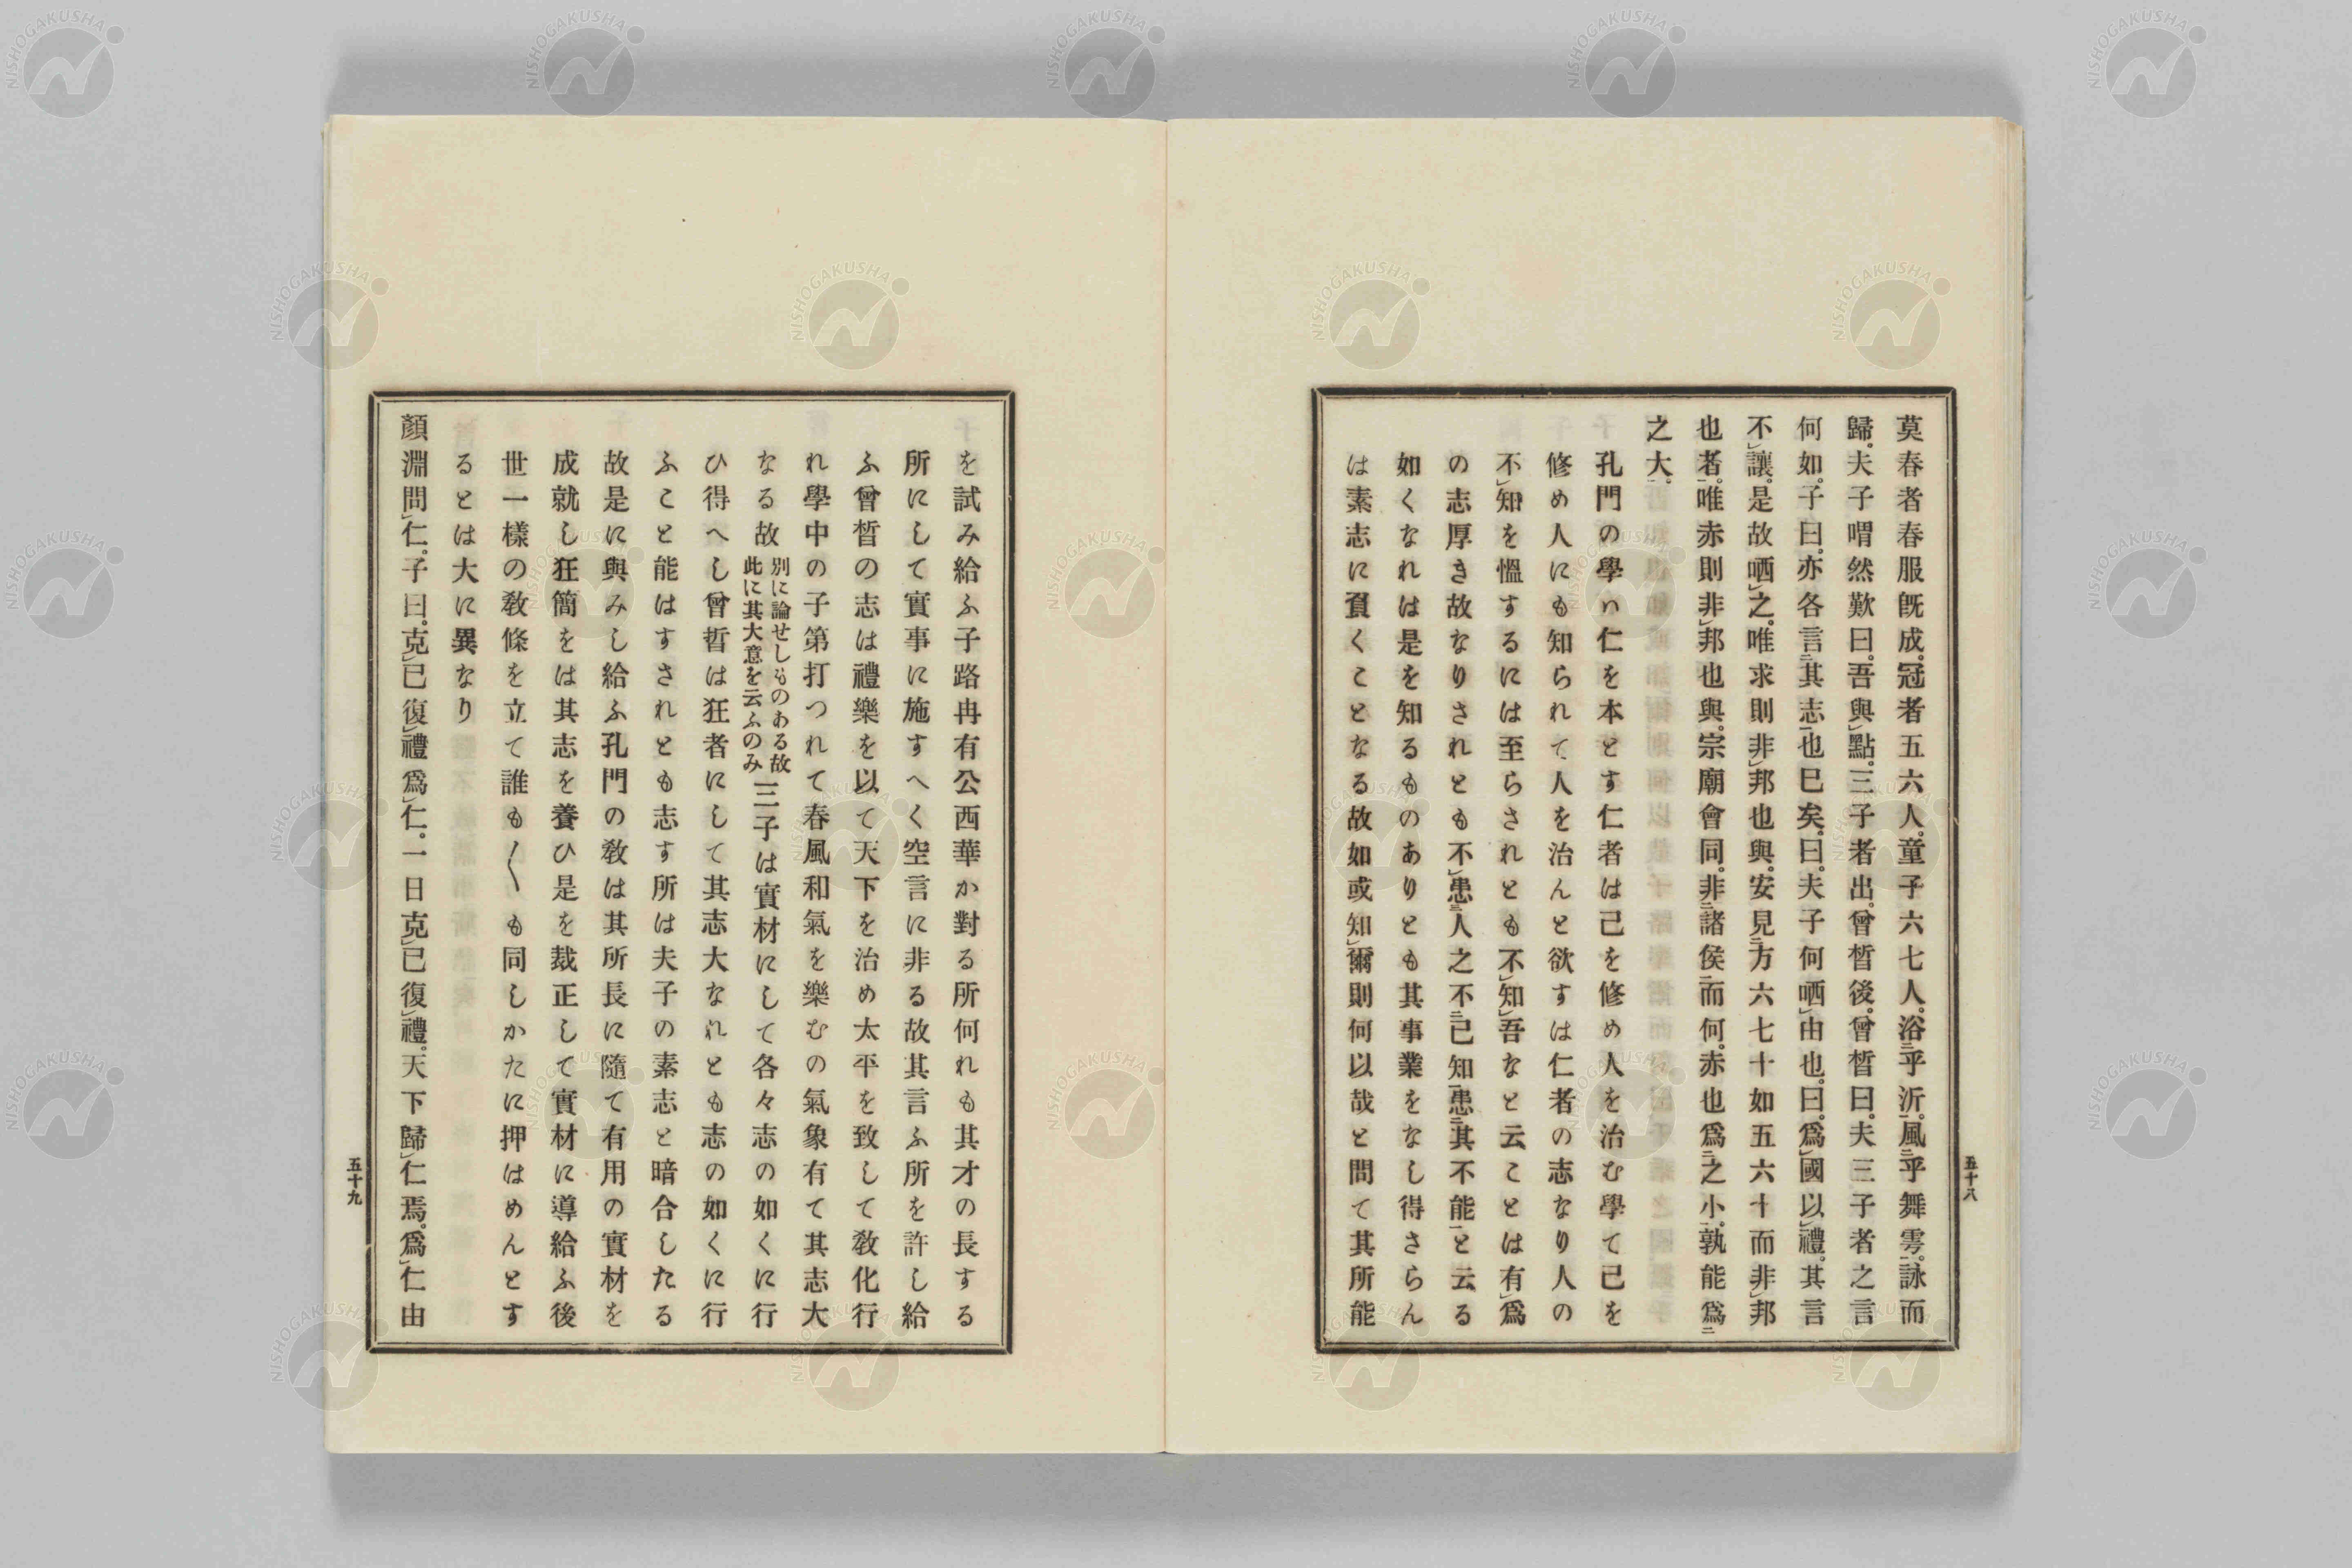 莫春者春服既成。冠者五六人。童子六七人。浴二乎沂一。風二乎舞雩一。詠而
歸。夫子喟然歎曰。吾與レ點。三子者出。曾晳後。曾晳曰。夫三子者之言
何如。子曰。亦各言二其志一也已矣。曰。夫子何哂レ由也。曰。爲レ國以レ禮。其言
不レ讓。是故哂レ之。唯求則非レ邦也與。安見二方六七十如五六十而非レ邦
也者一。唯赤則非レ邦也與。宗廟會同。非二諸侯一而何。赤也爲二之小一。孰能爲二
之大一。
孔門の學ハ仁を本とす仁者は己を修め人を治む學て己を
修め人にも知られて人を治んと欲すは仁者の志なり人の
不レ知を慍するには至らされとも不レ知レ吾なと云ことは有レ爲
の志厚き故なりされとも不レ患二人之不一レ己知患二其不能一と云る
如くなれは是を知るものありとも其事業をなし得さらん
は素志に負くことなる故如或知レ爾則何以哉と問て其所能
五十八
を試み給ふ子路冉有公西華か對る所何れも其才の長する
所にして實事に施すへく空言に非る故其言ふ所を許し給
ふ曾晳の志は禮樂を以て天下を治め太平を致して敎化行
れ學中の子第打つれて春風和氣を樂むの氣象有て其志大
なる故別に論せしものある故此に其大意を云ふのみ三子は實材にして各々志の如くに行
ひ得へし曾晳は狂者にして其志大なれとも志の如くに行
ふこと能はすされとも志す所は夫子の素志と暗合したる
故是に與みし給ふ孔門の敎は其所長に隨て有用の實材を
成就し狂簡をは其志を養ひ是を裁正して實材に導給ふ後
世一樣の敎條を立て誰も〱も同しかたに押はめんとす
るとは大に異なり
顏淵問レ仁。子曰。克レ己復レ禮爲レ仁。一日克レ己復レ禮。天下歸レ仁焉。爲レ仁由
五十九
NISHOGAKUSHA